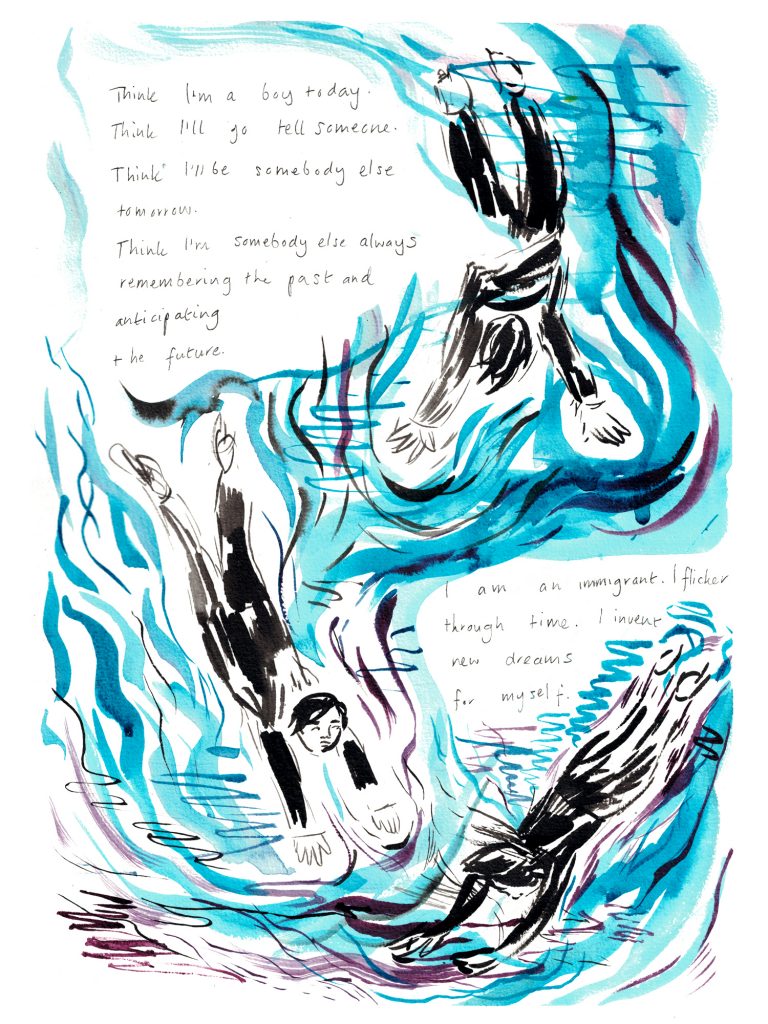 Think I'm a boy today.
Think I'll go tell someone.
Think I'll be somebody else
tomorrow.
Think I'm somebody else always
remembering the past and
anticipating
the future.
I am an immigrant. I flicker
through time. I invent
new dreams
for myself.